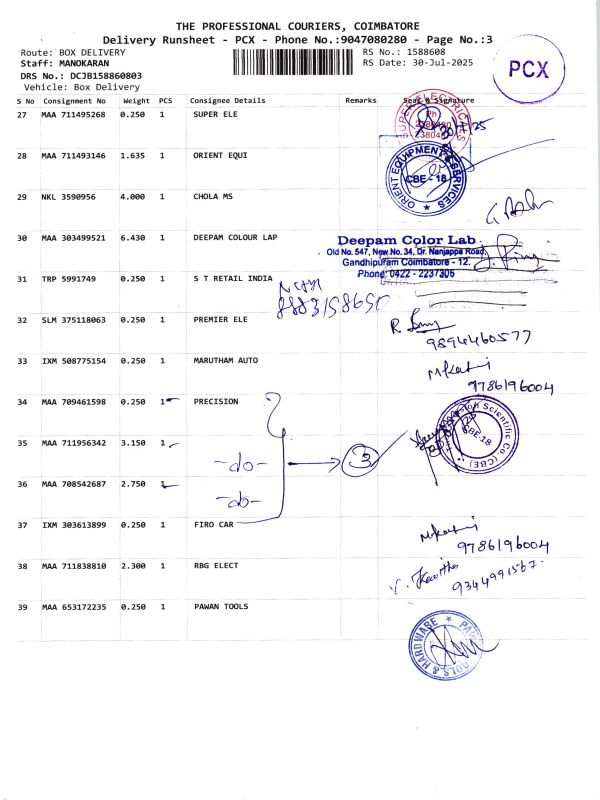 THE PROFESSIONAL COURIERS, COIMBATORE
Delivery Runsheet - PCX - Phone No.:9047080280 - Page No.:3
Route: BOX DELIVERY
RS No.: 1588608
Staff: MANOKARAN
RS Date: 30-Jul-2025
DRS No.: DCJB158860803
Vehicle: Box Delivery
PCX
S No Consignment No Weight PCS Consignee Details Remarks Seal & Signature
27 MAA 711495268 0.250 1 SUPER ELE
28 MAA 711493146 1.635 1 ORIENT EQUI
ORIENT EQUIPMENT & SERVICES
CBE - 18
29 NKL 3590956 4.000 1 CHOLA MS
30 MAA 303499521 6.430 1 DEEPAM COLOUR LAP
Deepam Color Lab
Old No. 547, New No. 34, Dr. Nanjappa Road,
Gandhipuram Coimbatore - 12.
Phone: 0422 - 2237305
31 TRP 5991749 0.250 1 S T RETAIL INDIA
8883158650
32 SLM 375118063 0.250 1 PREMIER ELE
9894460577
33 IXM 508775154 0.250 1 MARUTHAM AUTO
9786196004
34 MAA 709461598 0.250 1 PRECISION
35 MAA 711956342 3.150 1 -do- 3
Scientific Co (CBE)
CBE-18
36 MAA 708542687 2.750 1 -do-
37 IXM 303613899 0.250 1 FIRO CAR
9786196004
38 MAA 711838810 2.300 1 RBG ELECT
9344991567
39 MAA 653172235 0.250 1 PAWAN TOOLS
TOOLS & HARDWARE